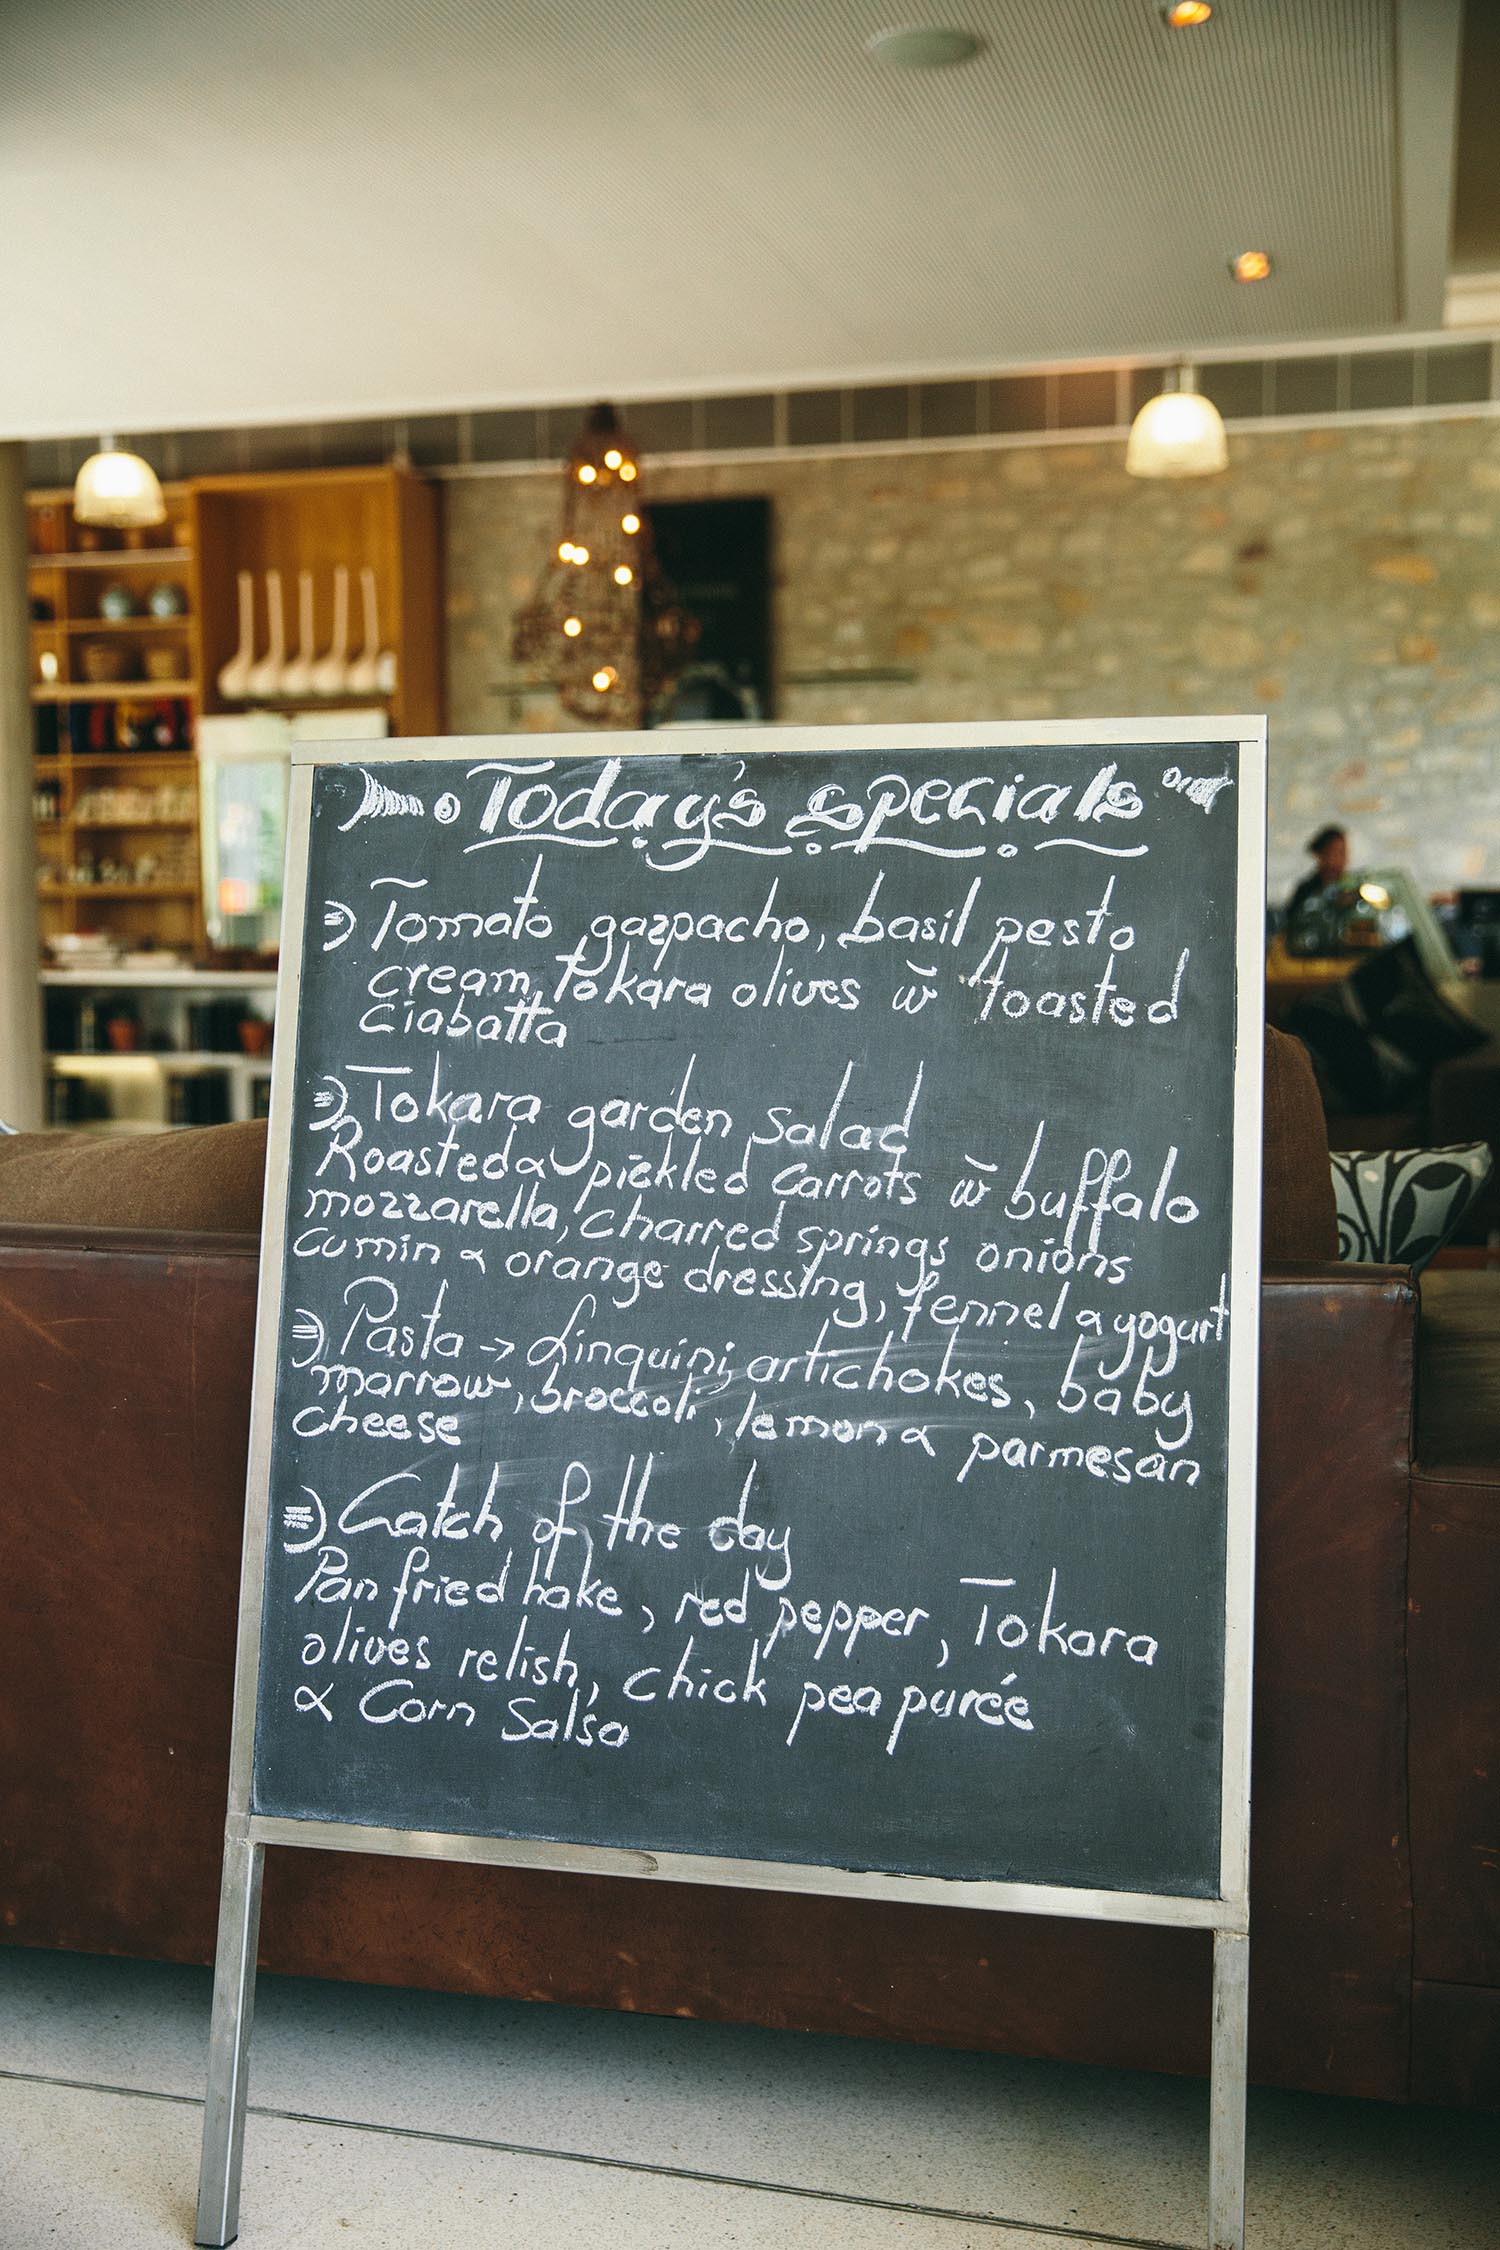 Today's specials
Tomato gazpacho, basil pesto
cream, Tokara olives w toasted
Ciabatta
Tokara garden salad
Roasted & pickled carrots w buffalo
mozzarella, charred springs onions
cumin & orange dressing, fennel & yogurt
Pasta → Linquini, artichokes, baby
marrow, broccoli, lemon & parmesan
cheese
Catch of the day
Pan fried hake, red pepper, Tokara
olives relish, chick pea purée
& Corn Salsa